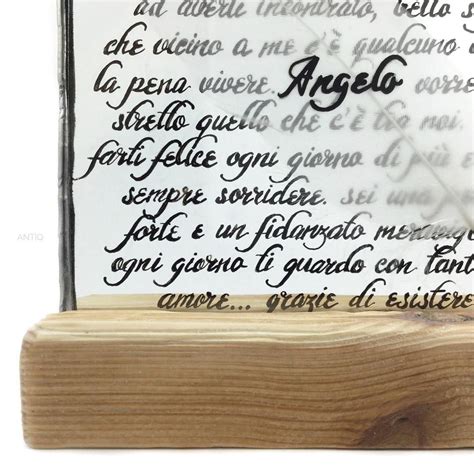 ad averti incontrato, bello s
che vicino a me c'è qualcuno
la pena vivere. Angelo vorre
stretto quello che c'è tra noi.
farti felice ogni giorno di più e
sempre sorridere. sei una
forte e un fidanzato meravig
ogni giorno ti guardo con tant
amore... grazie di esistere
ANTIQ